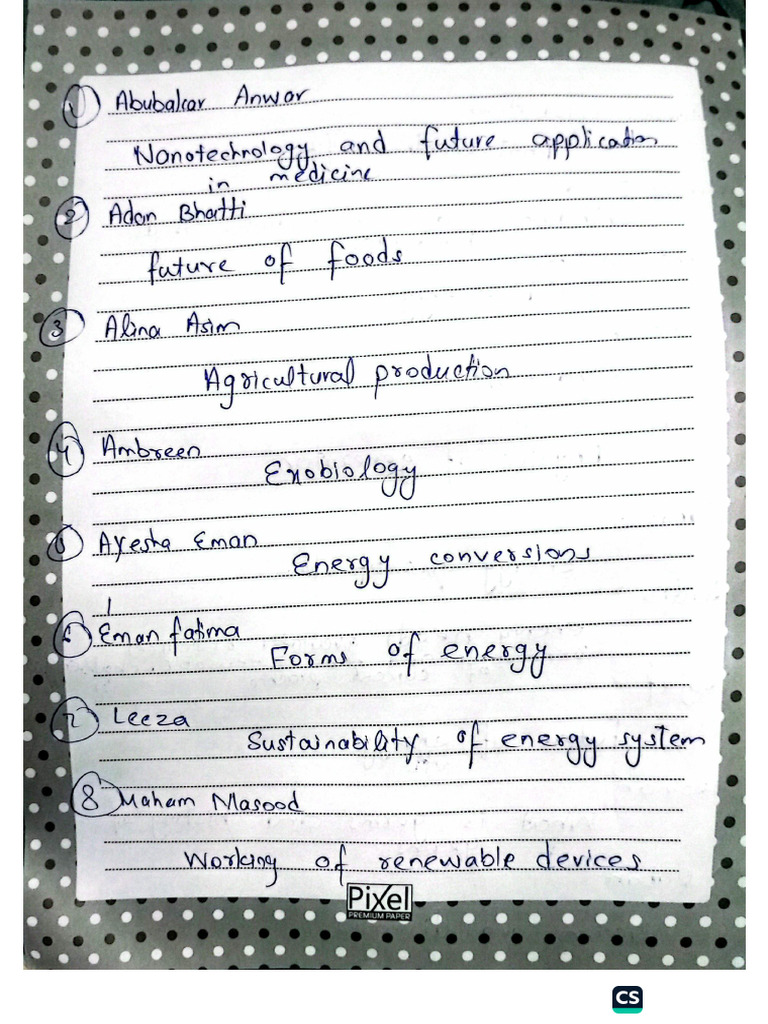 1 Abubakar Anwar
Nanotechnology and future application
in medicine
2 Adan Bhatti
future of foods
3 Alina Asim
Agricultural production
4 Ambreen
Exobiology
5 Ayesha Eman
Energy conversions
6 Eman fatima
Forms of energy
7 Leeza
Sustainability of energy system
8 Maham Masood
Working of renewable devices
Pixel
PREMIUM PAPER
CS